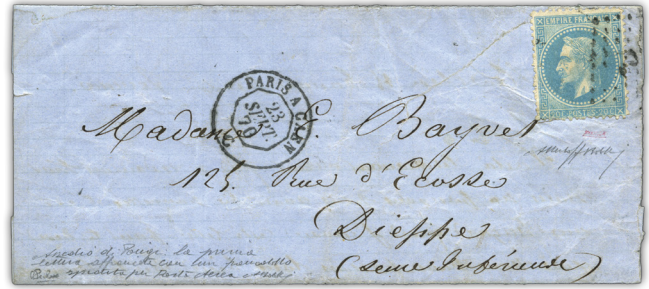 EMPIRE FRANC
PARIS A CAEN
23
SEPT.
70
2
Madame E. Bayvet
125 Rue d'Ecosse
Dieppe
(Seine Inférieure)
Assedio di Parigi. La prima
lettera affrancata con un francobollo
spedita per Posta Aerea